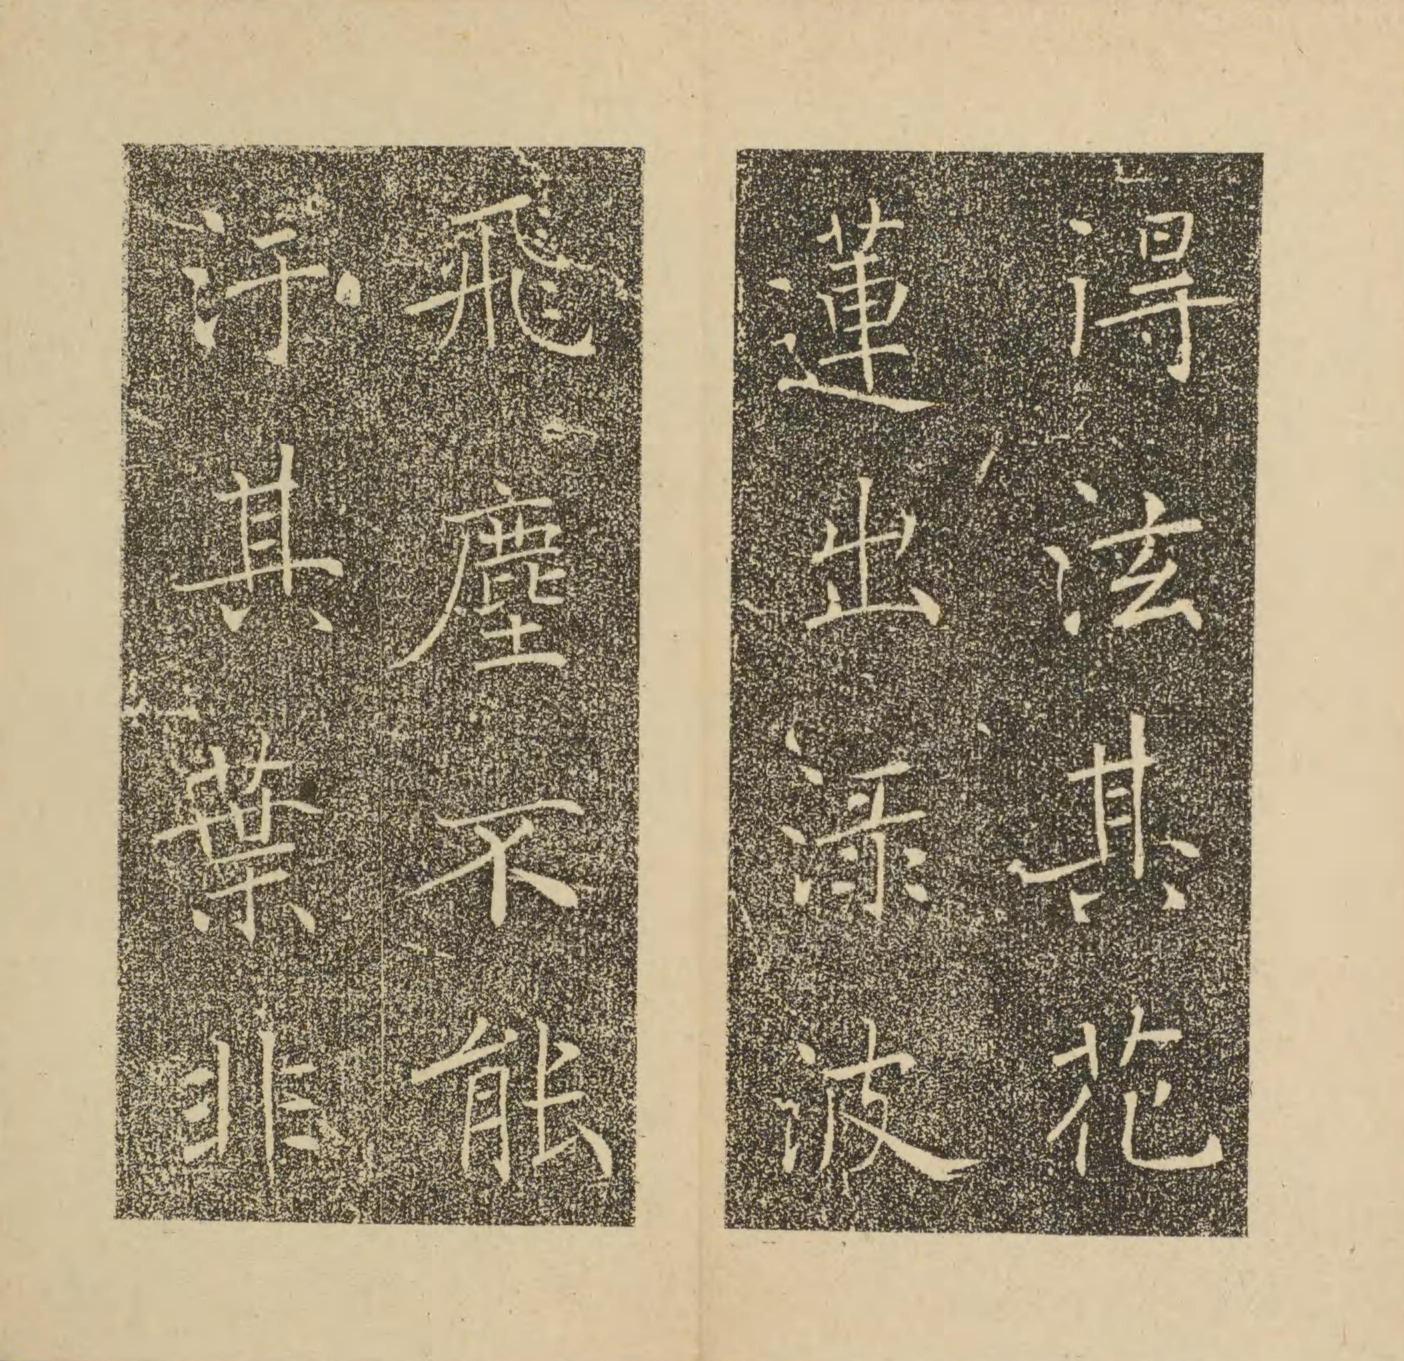 得泫其花
蓮出淥波
飛塵不能
汙其葉非